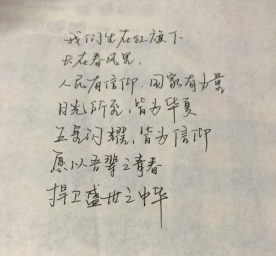 我们生在红旗下
长在春风里
人民有信仰,国家有力量
目光所至,皆为华夏
五星闪耀,皆为信仰
愿以吾辈之青春
捍卫盛世之中华